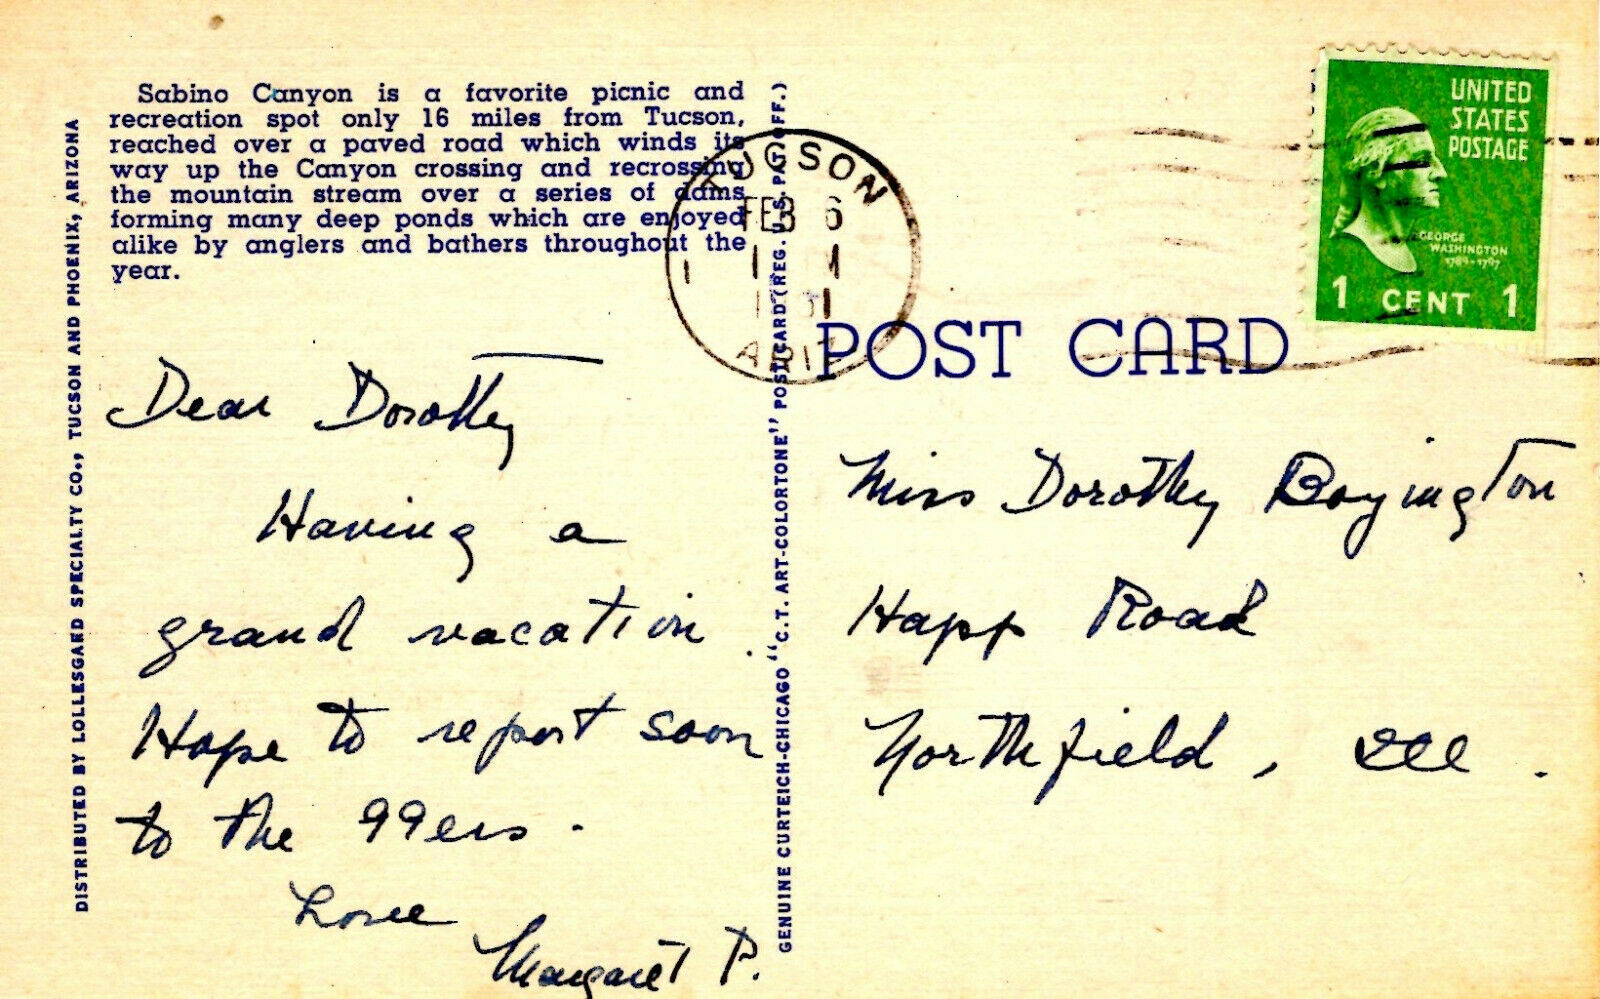 Sabino Canyon is a favorite picnic and
recreation spot only 16 miles from Tucson,
reached over a paved road which winds its
way up the Canyon crossing and recrossing
the mountain stream over a series of dams
forming many deep ponds which are enjoyed
alike by anglers and bathers throughout the
year.
DISTRIBUTED BY LOLLESGARD SPECIALTY CO., TUCSON AND PHOENIX, ARIZONA
Dear Dorothy
Having a
grand vacation.
Hope to report soon
to the 99ers.
Love
Margaret P.
GENUINE CURTEICH-CHICAGO "C.T. ART-COLORTONE" POST CARD (REG. U.S. PAT. OFF.)
TUCSON
FEB 6
ARIZ
UNITED
STATES
POSTAGE
GEORGE
WASHINGTON
1789-1797
1 CENT 1
POST CARD
Miss Dorothy Boyington
Happ Road
Northfield, Ill.